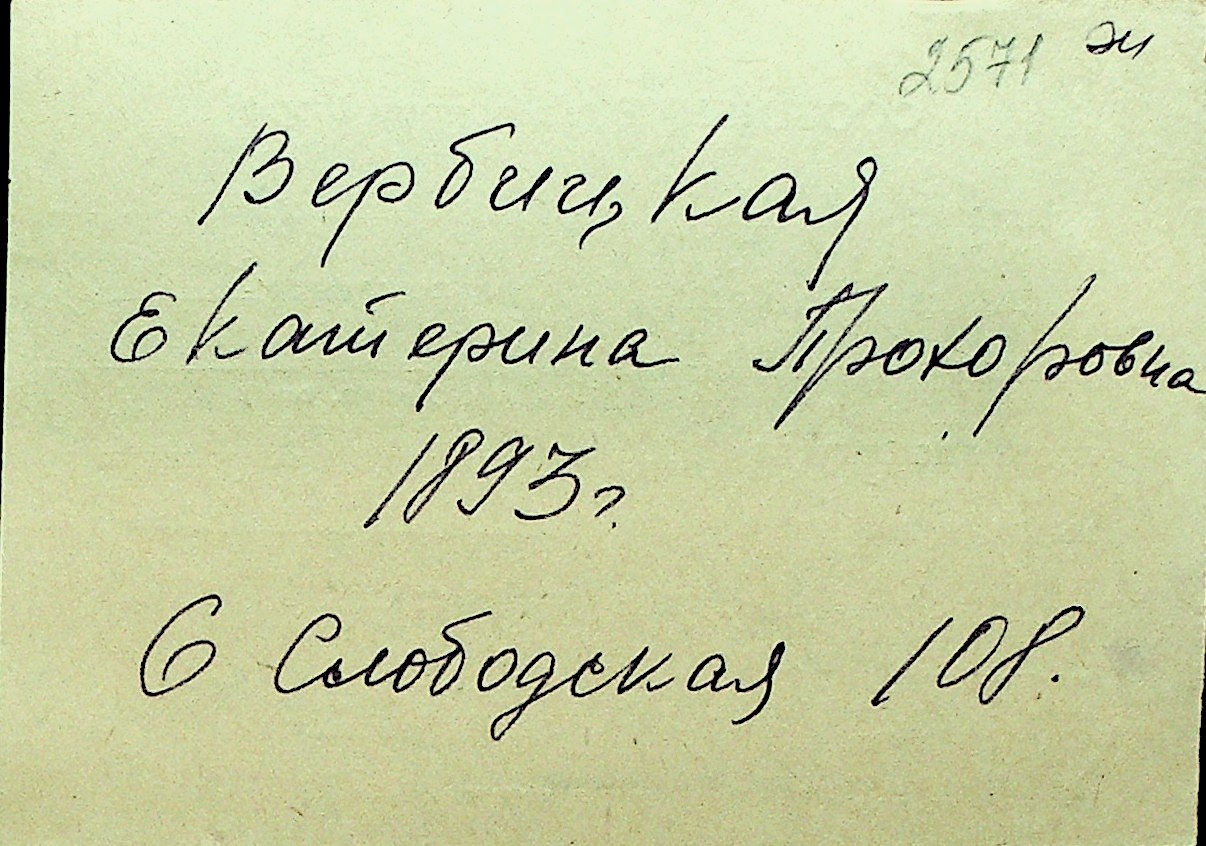 2571 ж
Вербицкая
Екатерина Прохоровна
1893 г.
6 Слободская 108.